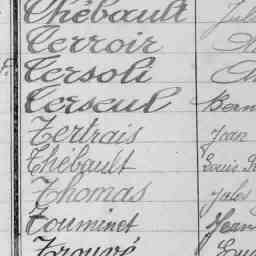 Thébault Jul
Terroir
Tersoli
Terseul Bern
Tertrais Jean
Thébault Louis
Thomas Jules
Touminet Jean
Trouvé Lou